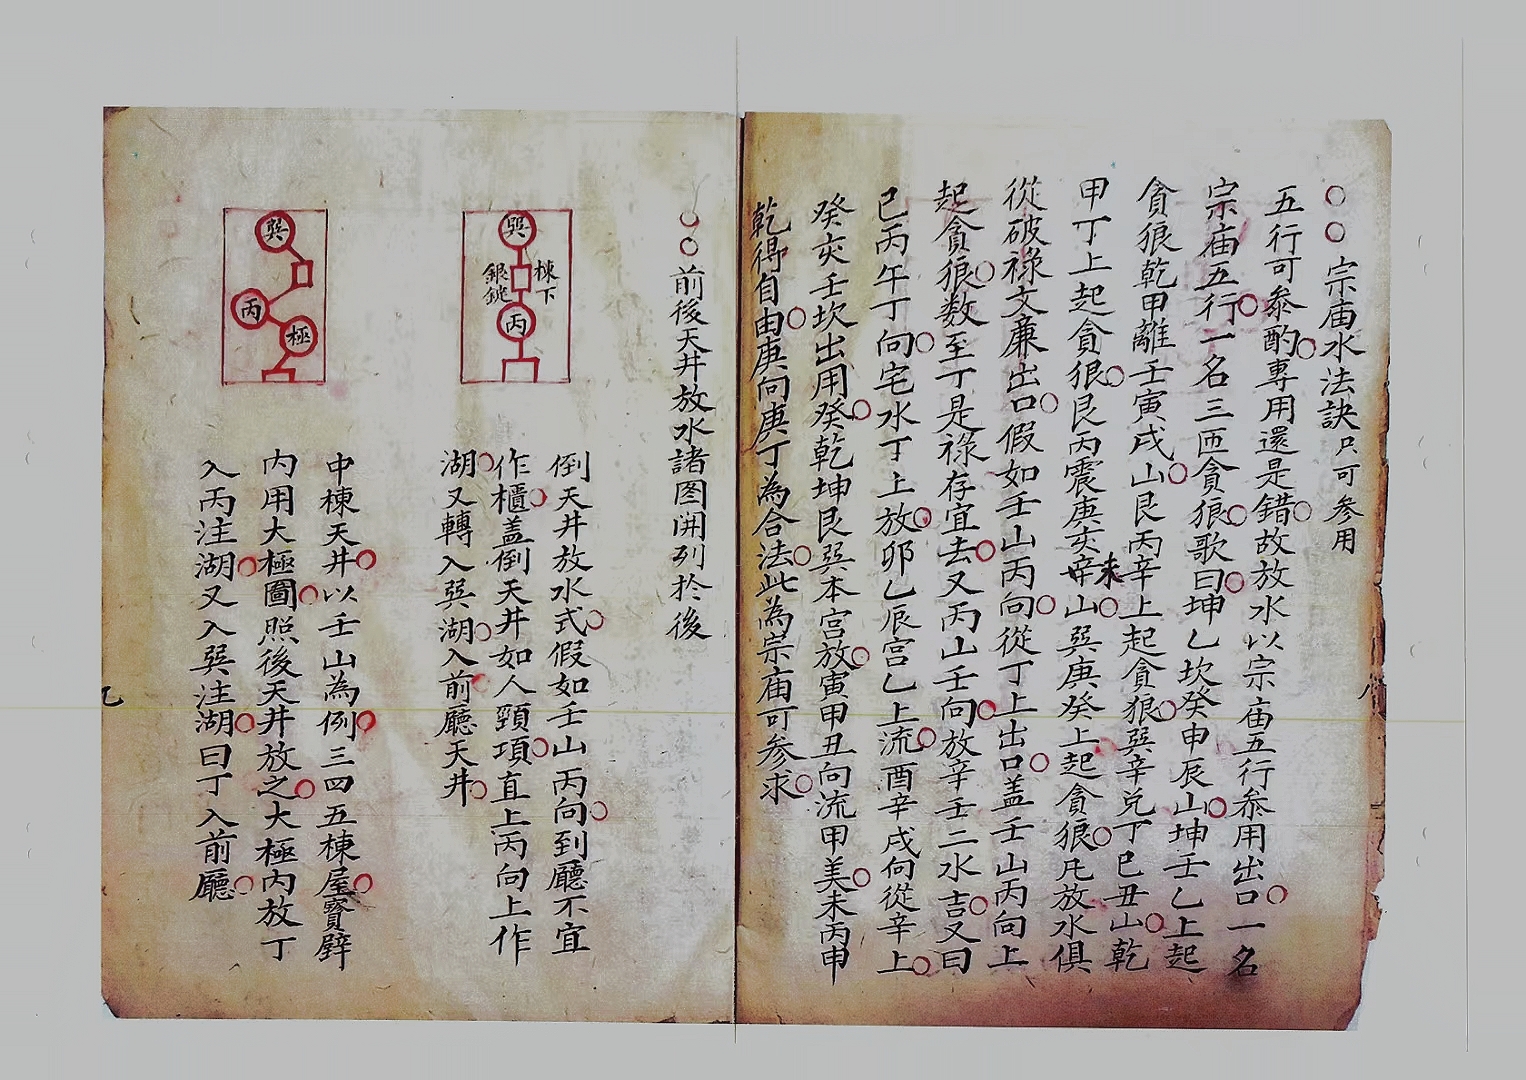 ○○宗庙水法訣只可參用
五行可叅酌○專用還是錯○故放水以宗庙五行叅用出口○一名
宗庙五行○一名三匝貪狼○歌曰○坤乙坎癸申辰山○坤壬乙上起
貪狼乾甲離壬寅戌山○艮丙辛上起貪狼○巽辛兌丁巳丑山○乾
甲丁上起貪狼○艮丙震庚亥未山○巽庚癸上起貪狼○凡放水俱
從破祿文廉出口○假如壬山丙向○從丁上出口○盖壬山丙向上
起貪狼○数至丁是祿存宜去○又丙山壬向○放辛壬二水吉○又曰
巳丙午丁向○宅水丁上放○卯乙辰宮乙上流○酉辛戌向從辛上○
癸亥壬坎出用癸○乾坤艮巽本宮放○寅甲丑向流甲美○未丙申
乾得自由○庚向庚丁為合法○此為宗庙可參求○
○○前後天井放水諸图開列於後
巽
棟下
銀銚
丙
倒天井放水式○假如壬山丙向○到廳不宜
作櫃○盖倒天井如人頸項○直上丙向上作
湖○又轉入巽湖○入前廳天井○
巽
丙
極
中棟天井○以壬山為例○三四五棟屋○寳壁
内用大極圖○照後天井放之○大極内放丁
入丙注湖○又入巽注湖○曰丁入前廳○